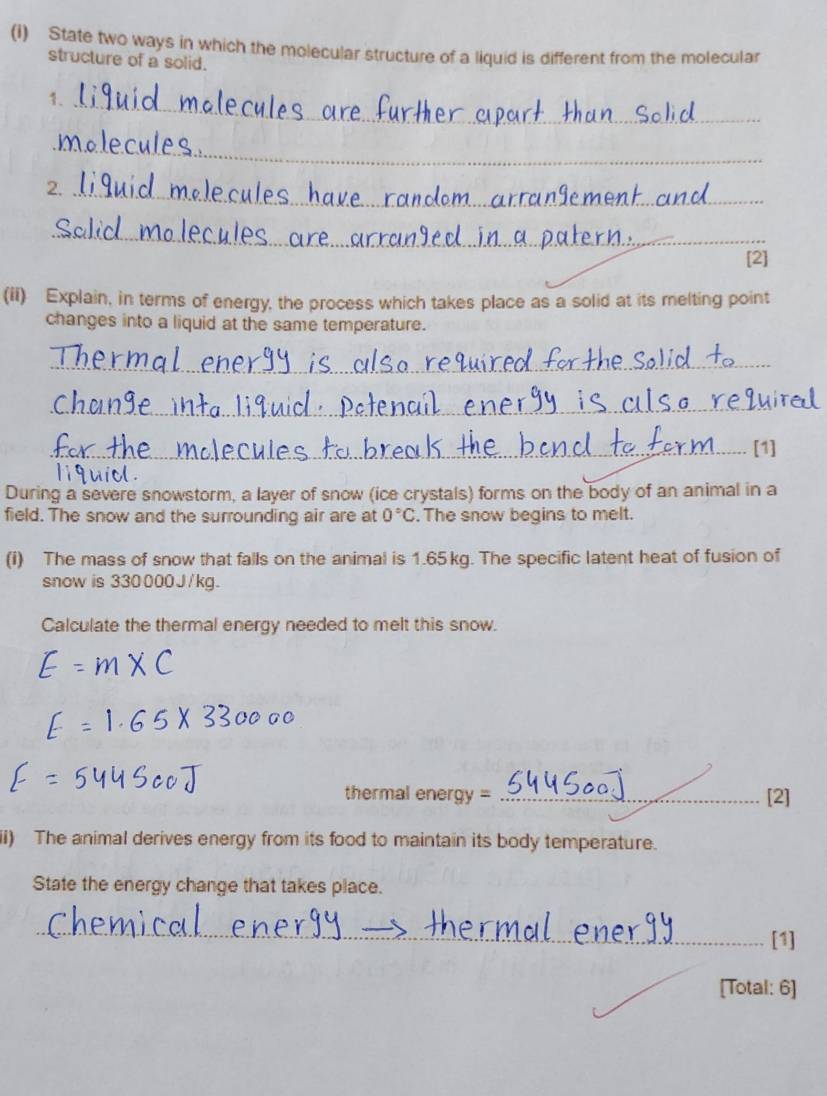 (i) State two ways in which the molecular structure of a liquid is different from the molecular
structure of a solid.
1. liquid molecules are further apart than solid
molecules.
2. liquid molecules have random arrangement and
Solid molecules are arranged in a patern.
[2]
(ii) Explain, in terms of energy, the process which takes place as a solid at its melting point
changes into a liquid at the same temperature.
Thermal energy is also required for the solid to
change into liquid. Potenail energy is also required
for the molecules to break the bond to form [1]
liquid.
During a severe snowstorm, a layer of snow (ice crystals) forms on the body of an animal in a
field. The snow and the surrounding air are at 0°C. The snow begins to melt.
(i) The mass of snow that falls on the animal is 1.65kg. The specific latent heat of fusion of
snow is 330000J/kg.
Calculate the thermal energy needed to melt this snow.
E = m X C
E = 1.65 X 330000
E = 544500J
thermal energy = 544500J [2]
ii) The animal derives energy from its food to maintain its body temperature.
State the energy change that takes place.
Chemical energy → thermal energy [1]
[Total: 6]